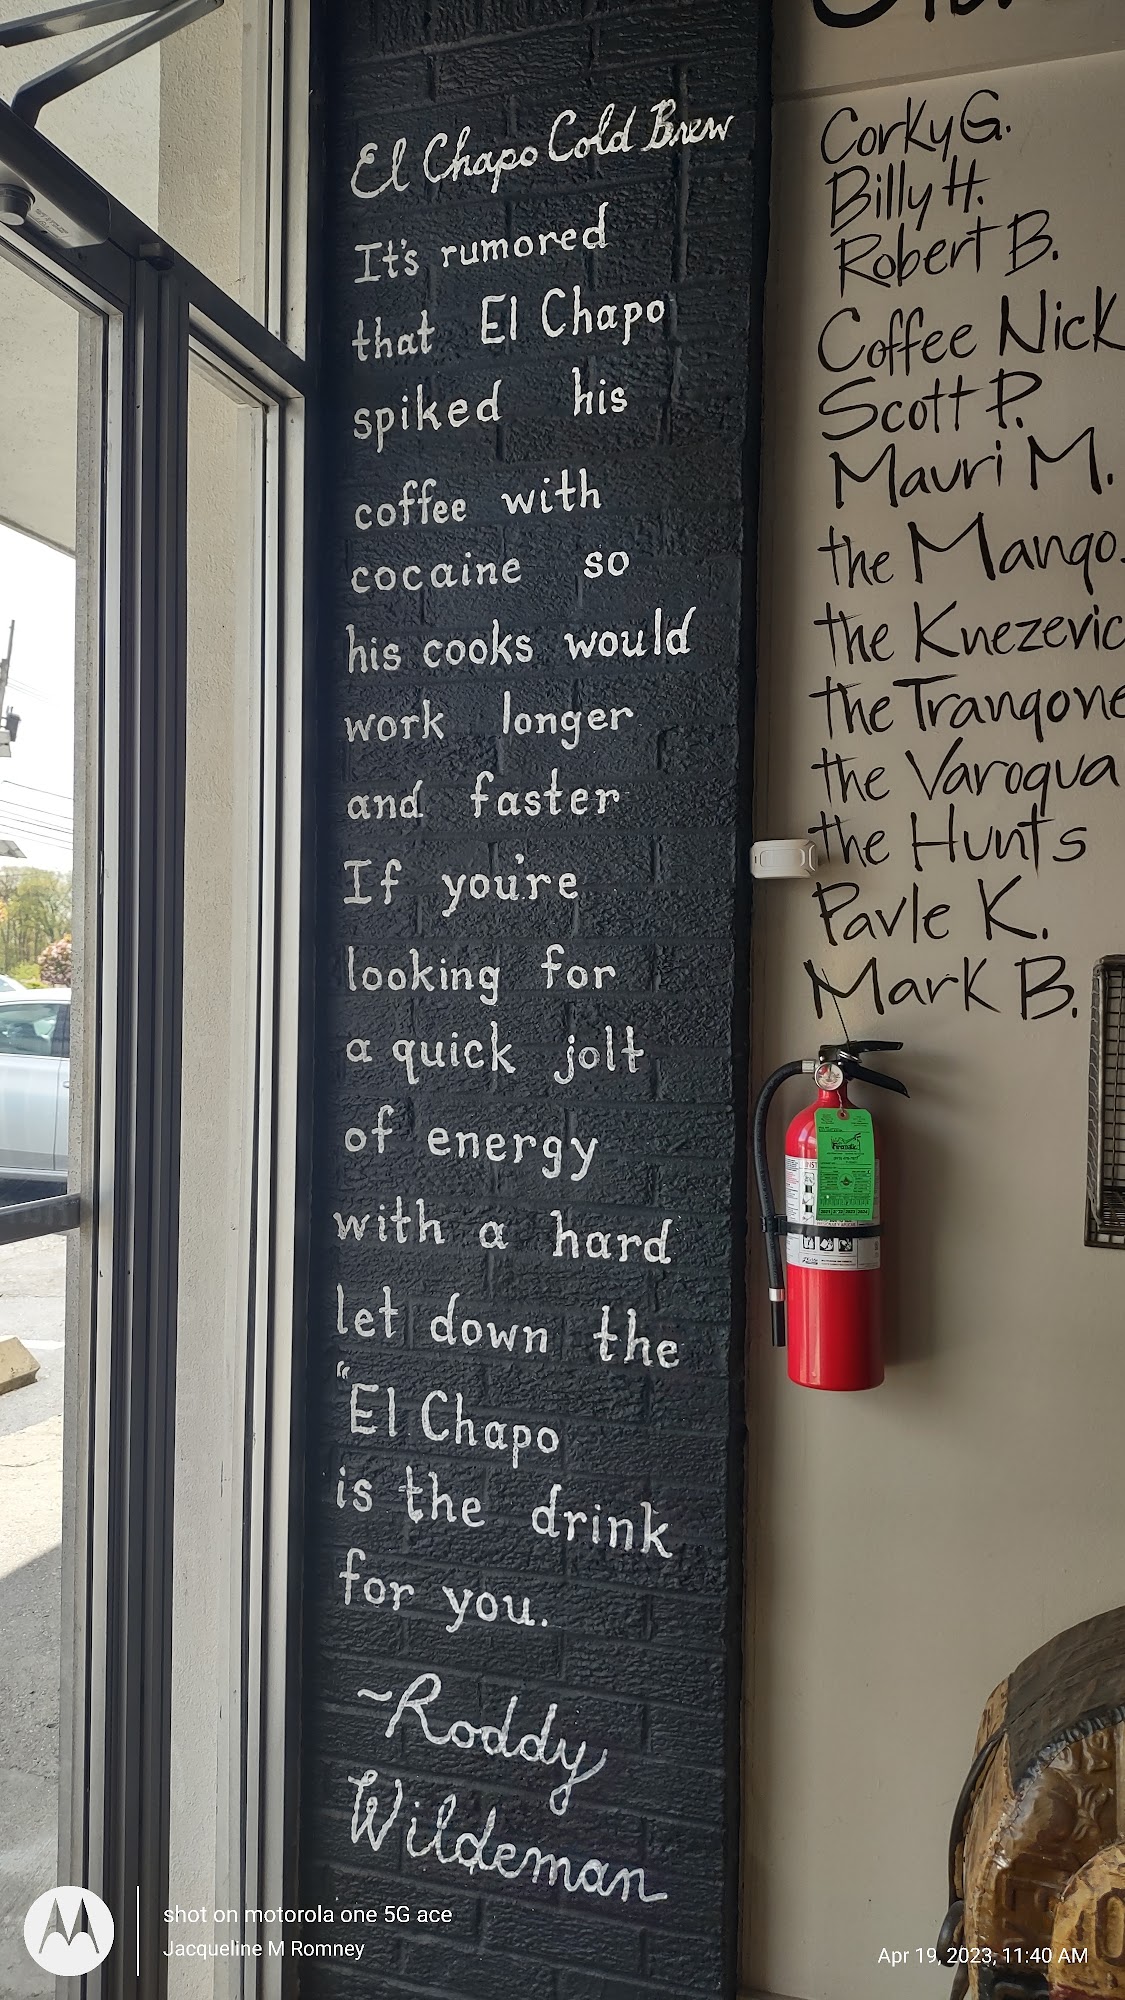 El Chapo Cold Brew
It's rumored
that El Chapo
spiked his
coffee with
cocaine so
his cooks would
work longer
and faster
If you're
looking for
a quick jolt
of energy
with a hard
let down the
"El Chapo
is the drink
for you.
~Roddy
Wildeman
Corky G.
Billy H.
Robert B.
Coffee Nick
Scott P.
Mauri M.
the Mango
the Knezevic
the Trangone
the Varoqua
the Hunts
Pavle K.
Mark B.
shot on motorola one 5G ace
Jacqueline M Romney
Apr 19, 2023, 11:40 AM